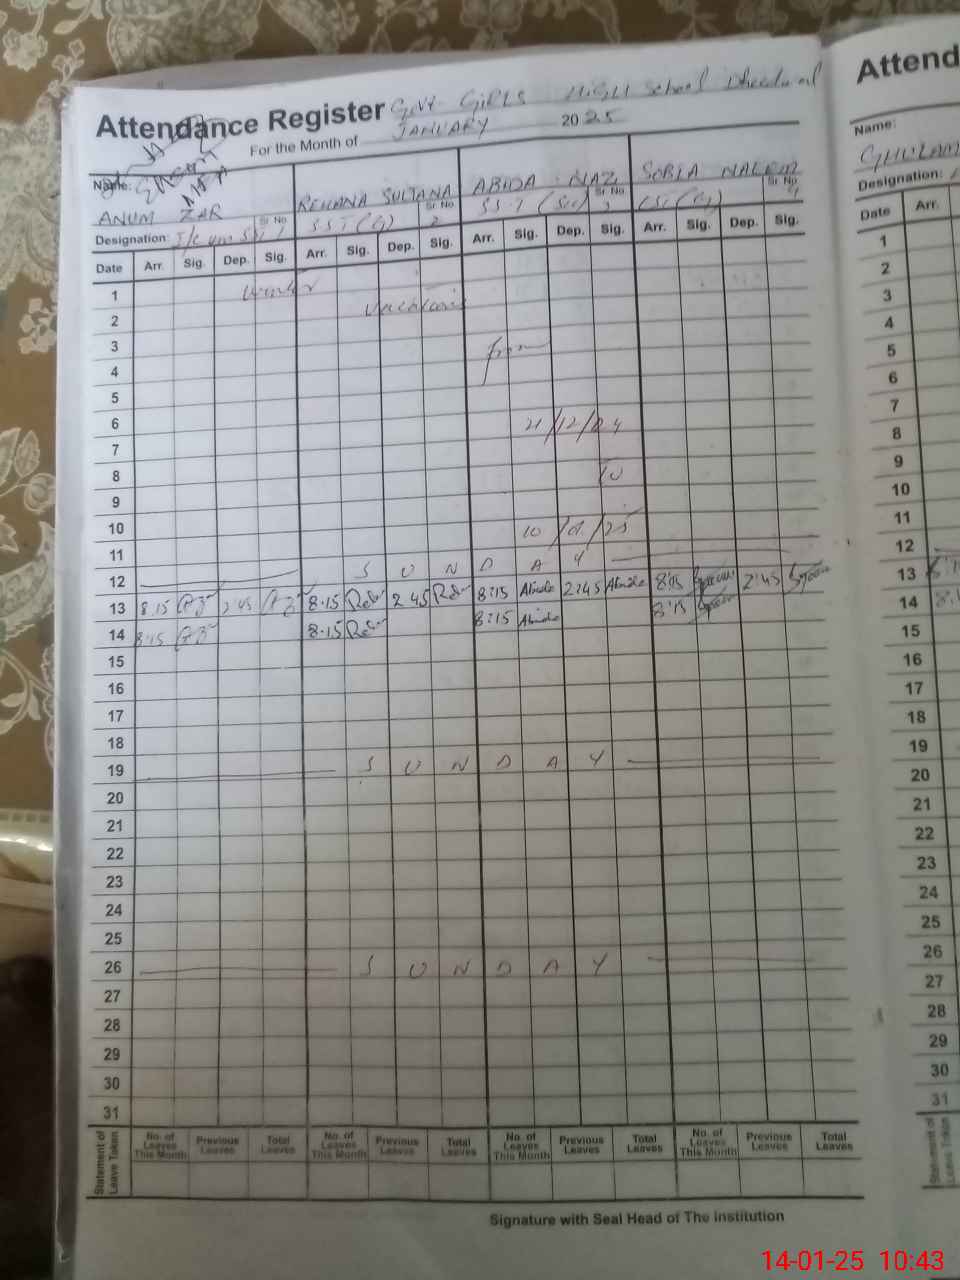 Attendance Register Govt. GIRLS HIGH School
For the Month of JANUARY 2025
Name:
ANUM ZAR REHANA SULTANA ABIDA NAZ SOBIA NALEEM
Sr No. 1 Sr No. 2 Sr No. 3 Sr No. 4
Designation: I/C SST(G) SST (Sci)
Date Arr. Sig. Dep. Sig. Arr. Sig. Dep. Sig. Arr. Sig. Dep. Sig. Arr. Sig. Dep. Sig.
1 Winter
2 Vacations
3 from
4
5
6 21/12/24
7
8 to
9
10 10/01/25
11
12 S U N D A Y
13 8:15 2:45 8:15 2:45 8:15 Abida 2:45 Abida 8:15 2:45
14 8:15 8:15 8:15 Abida 8:15
15
16
17
18
19 S U N D A Y
20
21
22
23
24
25
26 S U N D A Y
27
28
29
30
31
Statement of Leave Taken
No. of Leaves This Month Previous Leaves Total Leaves No. of Leaves This Month Previous Leaves Total Leaves No. of Leaves This Month Previous Leaves Total Leaves No. of Leaves This Month Previous Leaves Total Leaves
Signature with Seal Head of The institution
Attend
Name:
GHULAM
Designation:
Date Arr.
1
2
3
4
5
6
7
8
9
10
11
12
13
14
15
16
17
18
19
20
21
22
23
24
25
26
27
28
29
30
31
Statement of Leave Taken
14-01-25 10:43